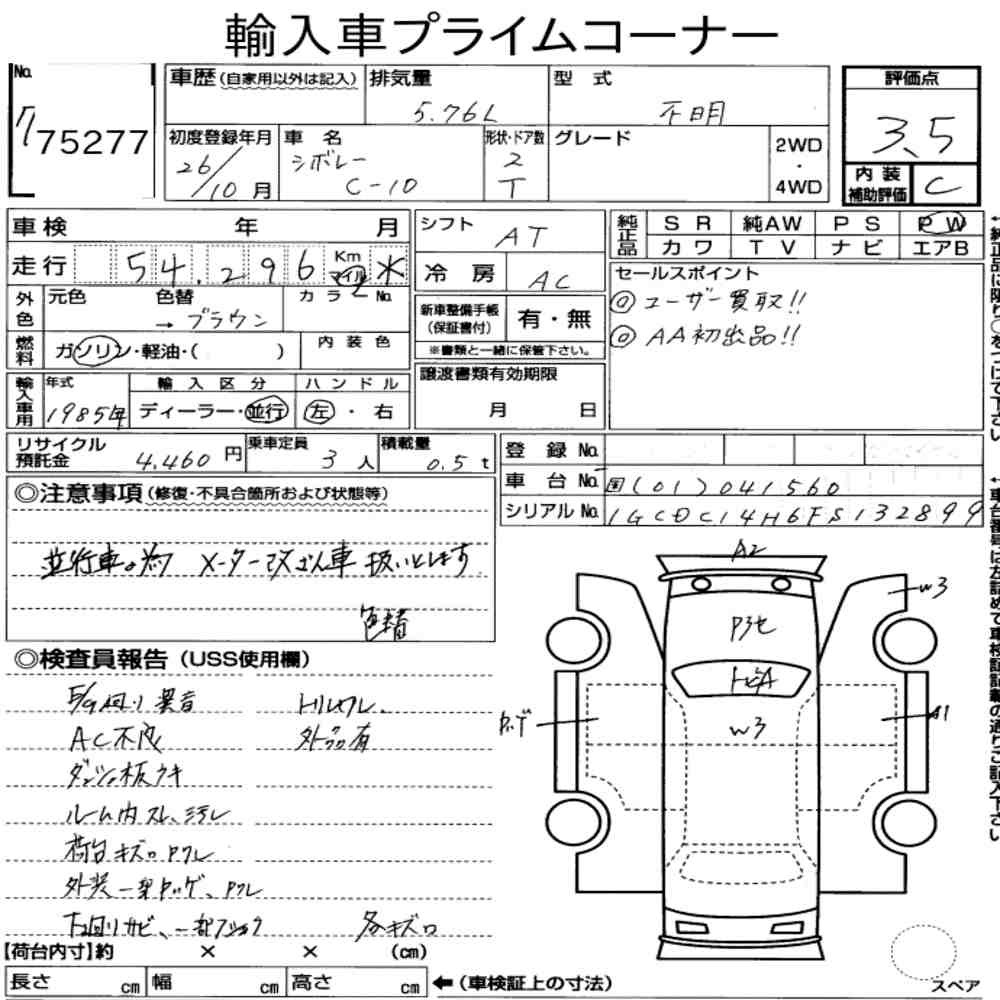 輸入車プライムコーナー
No.
775277
車歴 (自家用以外は記入)
排気量
5.76L
型式
不明
評価点
3.5
初度登録年月
26/10月
車名
シボレー
C-10
形状・ドア数
2
T
グレード
2WD
・
4WD
内装
補助評価
C
車検 年 月
走行 54,296 Km マイル ＊
シフト AT
冷房 AC
純正品
SR 純AW PS PW
カワ TV ナビ エアB
外色
元色 色替 カラーNo.
→ ブラウン
燃料
ガソリン・軽油・( )
内装色
新車整備手帳
(保証書付)
有・無
※書類と一緒に保管下さい。
セールスポイント
◎ユーザー買取!!
◎AA初出品!!
輸入車用
年式
1985年
輸入区分
ディーラー・並行
ハンドル
左・右
譲渡書類有効期限
月 日
リサイクル
預託金
4,460円
乗車定員
3人
積載量
0.5t
登録No.
車台No. 国(01)041560
シリアルNo. 1GCDC14H6FS132899
◎注意事項(修復・不具合箇所および状態等)
並行車の為 メーター改ざん車 扱いとします
色替
◎検査員報告(USS使用欄)
AC不良
外品有
ルーム内スレ、汚レ
荷台キズロ
各キズロ
【荷台内寸】約 × × (cm)
長さ cm 幅 cm 高さ cm
←(車検証上の寸法)
A2
W3
W3
A1
スペア
←純正品に限り○をつけて下さい。
←車台番号は左詰めで車検証記載の通りご記入下さい。